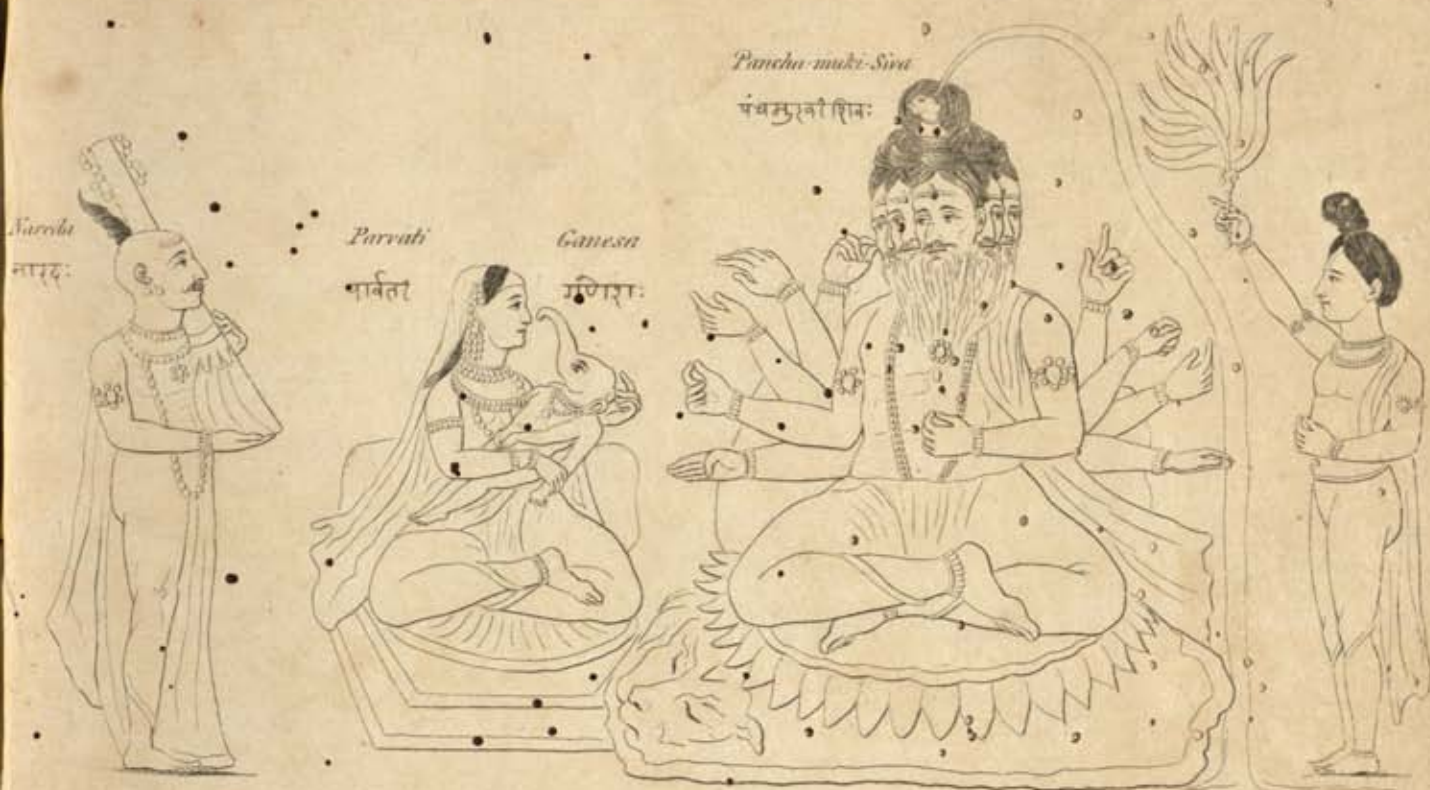 Pancha-muki-Siva
पंचमुखी शिवः
Nareda
नारदः
Parvati
पार्वती
Ganesa
गणेशः